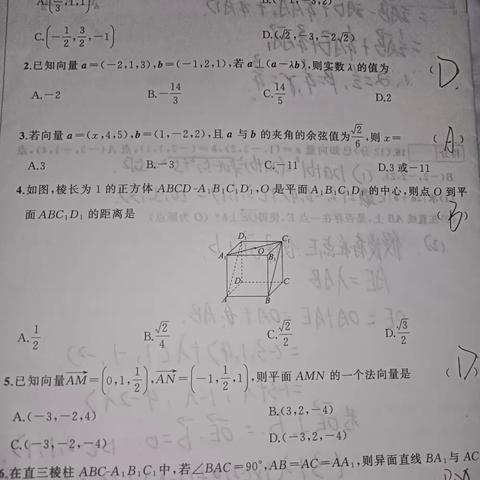 C.(-1/2,3/2,-1) D.(√2,-3,-2√2)
2.已知向量 a=(-2,1,3),b=(-1,2,1),若 a⊥(a-λb),则实数λ的值为 (D)
A.-2 B.-14/3 C.14/5 D.2
3.若向量 a=(x,4,5),b=(1,-2,2),且 a 与 b 的夹角的余弦值为√2/6,则 x= (A)
A.3 B.-3 C.-11 D.3 或-11
4.如图,棱长为 1 的正方体 ABCD-A₁B₁C₁D₁,O 是平面 A₁B₁C₁D₁ 的中心,则点 O 到平
面 ABC₁D₁ 的距离是 (B)
D₁ C₁
O
A₁ B₁
D C
A B
A.1/2 B.√2/4 C.√2/2 D.√3/2
5.已知向量AM=(0,1,1/2),AN=(-1,1/2,1),则平面 AMN 的一个法向量是 (D)
A.(-3,-2,4) B.(3,2,-4)
C.(-3,-2,-4) D.(-3,2,-4)
6.在直三棱柱 ABC-A₁B₁C₁ 中,若∠BAC=90°,AB=AC=AA₁,则异面直线 BA₁ 与 AC